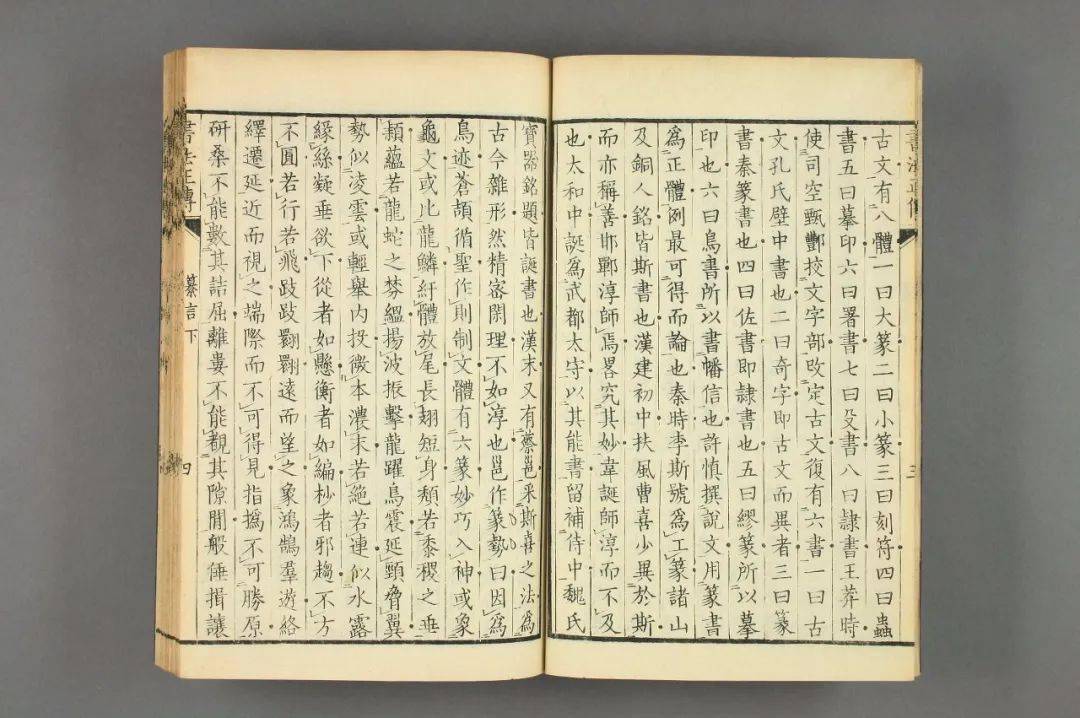 書法正傳 三
古文有八體一曰大篆二曰小篆三曰刻符四曰蟲
書五曰摹印六曰署書七曰殳書八曰隸書王莽時
使司空甄酆挍文字部攺定古文復有六書一曰古
文孔氏壁中書也二曰奇字即古文而異者三曰篆
書秦篆書也四曰佐書即隸書也五曰繆篆所以摹
印也六曰鳥書所以書幡信也許慎撰說文用篆書
爲正體例最可得而論也秦時李斯號爲工篆諸山
及銅人銘皆斯書也漢建初中扶風曹喜少異於斯
而亦稱善邯鄲淳師焉畧究其妙韋誕師淳而不及
也太和中誕爲武都太守以其能書留補侍中魏氏
寶器銘題皆誕書也漢末又有蔡邕采斯喜之法爲
古今雜形然精密閑理不如淳也邕作篆勢曰因爲
鳥迹蒼頡循聖作則制文體有六篆妙巧入神或象
龜文或比龍鱗紆體放尾長翅短身頹若黍稷之垂
穎蘊若龍蛇之棼縕揚波振擊龍躍鳥震延頸脅翼
勢似淩雲或輕舉内投微本濃末若絶若連似水露
緣絲凝垂欲下從者如懸衡者如編杪者邪趨不方
不圓若行若飛跂跂翾翾遠而望之象鴻鵠羣遊絡
繹遷延近而視之端際而不可得見指撝不可勝原
研桑不能數其詰屈離婁不能覩其隙間般倕揖讓
書法正傳 纂言下 四